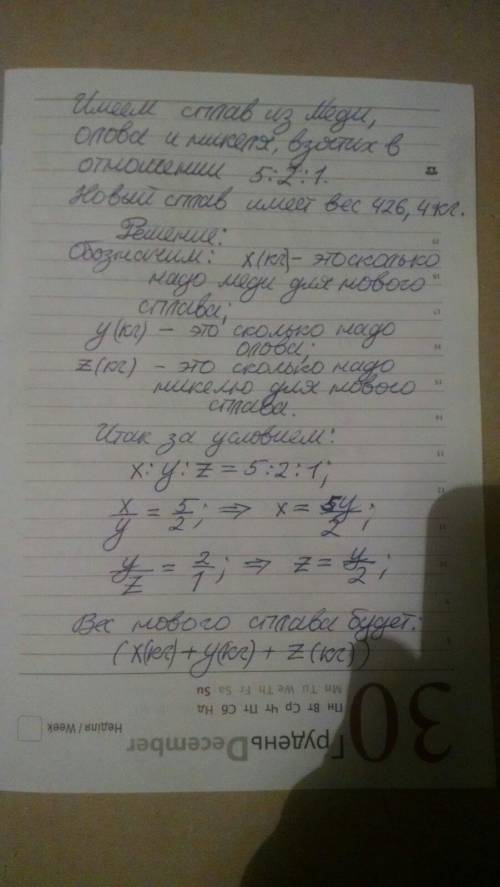 Имеем сплав из меди,
олова и никеля, взятих в
отношении 5:2:1.
Новый сплав имеет вес 426,4 кг.
Решение:
Обозначим: x(кг) - это сколько
надо меди для нового
сплава;
y(кг) - это сколько надо
олова;
z(кг) - это сколько надо
никелю для нового
сплава.
Итак за условием:
x:y:z = 5:2:1;
x/y = 5/2; ⇒ x = 5y/2;
y/z = 2/1; ⇒ z = y/2;
Вес нового сплава будет:
(x(кг)+y(кг)+z(кг))
30
Грудень December
Пн Вт Ср Чт Пт Сб Нд
Mn Tu We Th Fr Sa Su
Неділя / Week